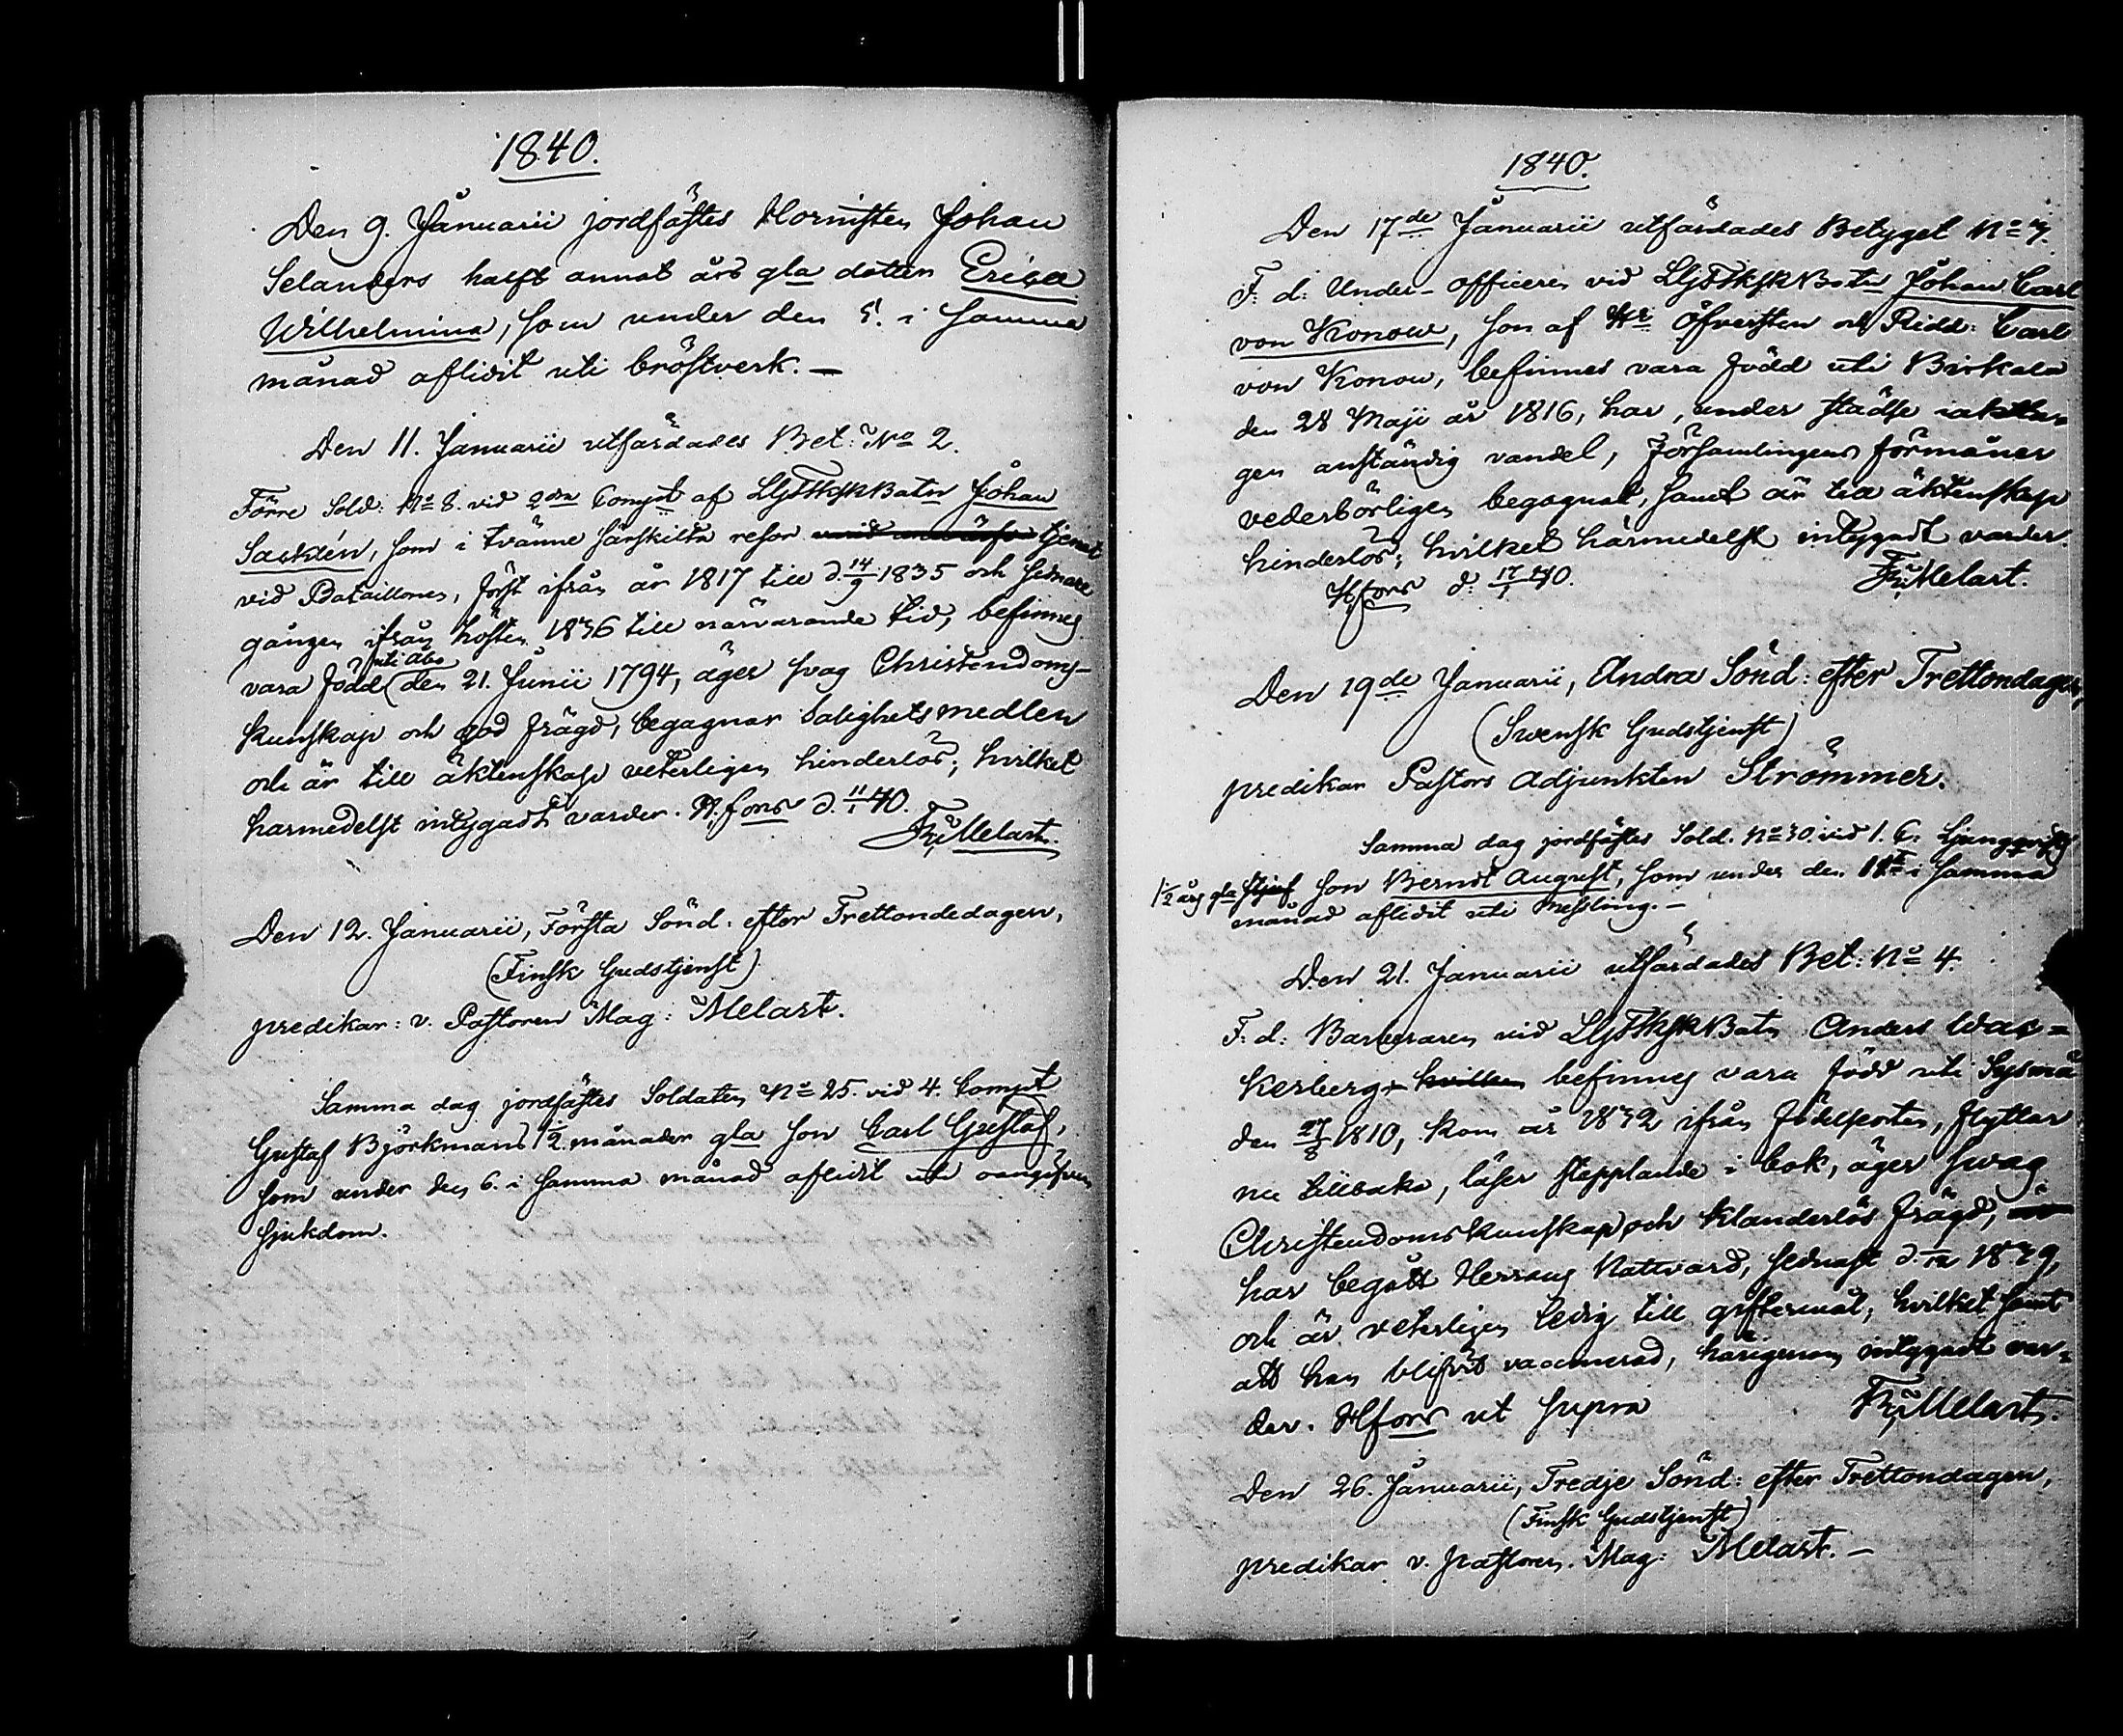 1840.
Den 9. Januarii jordfästes Hornisten Johan
Selanders halft annat års gla dotter Erica
Wilhelmina, som under den 5. i samma
månad aflidit uti bröstverk. —
Den 11. Januarii utfärdades Bet: No 2.
Förre Sold: No 8. vid 2dra Compt af LGFSkSkBatn Johan
Sacklén, som i tvänne särskilta resor tjenat
vid Bataillonen, först ifrån år 1817 till d. 14/9 1835 och sednare
gången ifrån hösten 1836 till närvarande tid, befinnes
uti Åbo
vara född den 21. Junii 1794, äger svag Christendoms-
kunskap och god frägd, begagnar salighetsmedlen
och är till äktenskap veterligen hinderlös; hvilket
härmedelst intygadt varder. H:fors d. 11/1 40.
Melart.
Den 12. Januarii, Första Sönd: efter Trettondedagen,
(Finsk Gudstjenst)
predikar: v. Pastoren Mag: Melart.
Samma dag jordfästes Soldaten No 25. vid 4. Compt
Gustaf Björkmans 1/2 månader gla son Carl Gustaf,
som under den 6. i samma månad aflidit uti oangifven
sjukdom.
1840.
Den 17de Januarii utfärdades Betyget No 3.
F: d: Under-officeren vid LGFSkSkBatn Johan Carl
von Konow, son af Hr Öfversten och Ridd: Carl
von Konow, befinnes vara född uti Birkala
den 28 Maji år 1816, har, under städse iakttagen
gen anständig vandel, församlingens förmåner
vederbörligen begagnat, samt är till äktenskap
hinderlös; hvilket härmedelst intygadt varder.
H:fors d: 17/1 40. Melart.
Den 19de Januarii, Andra Sönd: efter Trettondagen,
(Swensk Gudstjenst)
predikar Pastors Adjunkten Strömmer.
Samma dag jordfästes Sold. No 30. vid 1. C. Ljungqvists
1 1/2 års gla styf son Berndt August, som under den i samma
månad aflidit uti messling. —
Den 21. Januarii utfärdades Bet: No 4.
F: d: Barberaren vid LGFSkSkBatn Anders Wac=
kerberg, hvilken befinnes vara född uti Sysmä
den 27/8 1810, kom år 1832 ifrån födelseorten, flyttar
nu tillbaka, läser stapplande i bok, äger svag
Christendomskunskap och klanderlös frägd,
har begått Herrans Nattvard, sednast d. 1839,
och är veterligen ledig till giftermål; hvilket samt
att han blifvit vaccinerad, härigenom intygadt var=
der. H:fors ut supra Melart.
Den 26. Januarii, Tredje Sönd: efter Trettondagen,
(Finsk Gudstjenst)
predikar v. pastoren. Mag: Melart. —